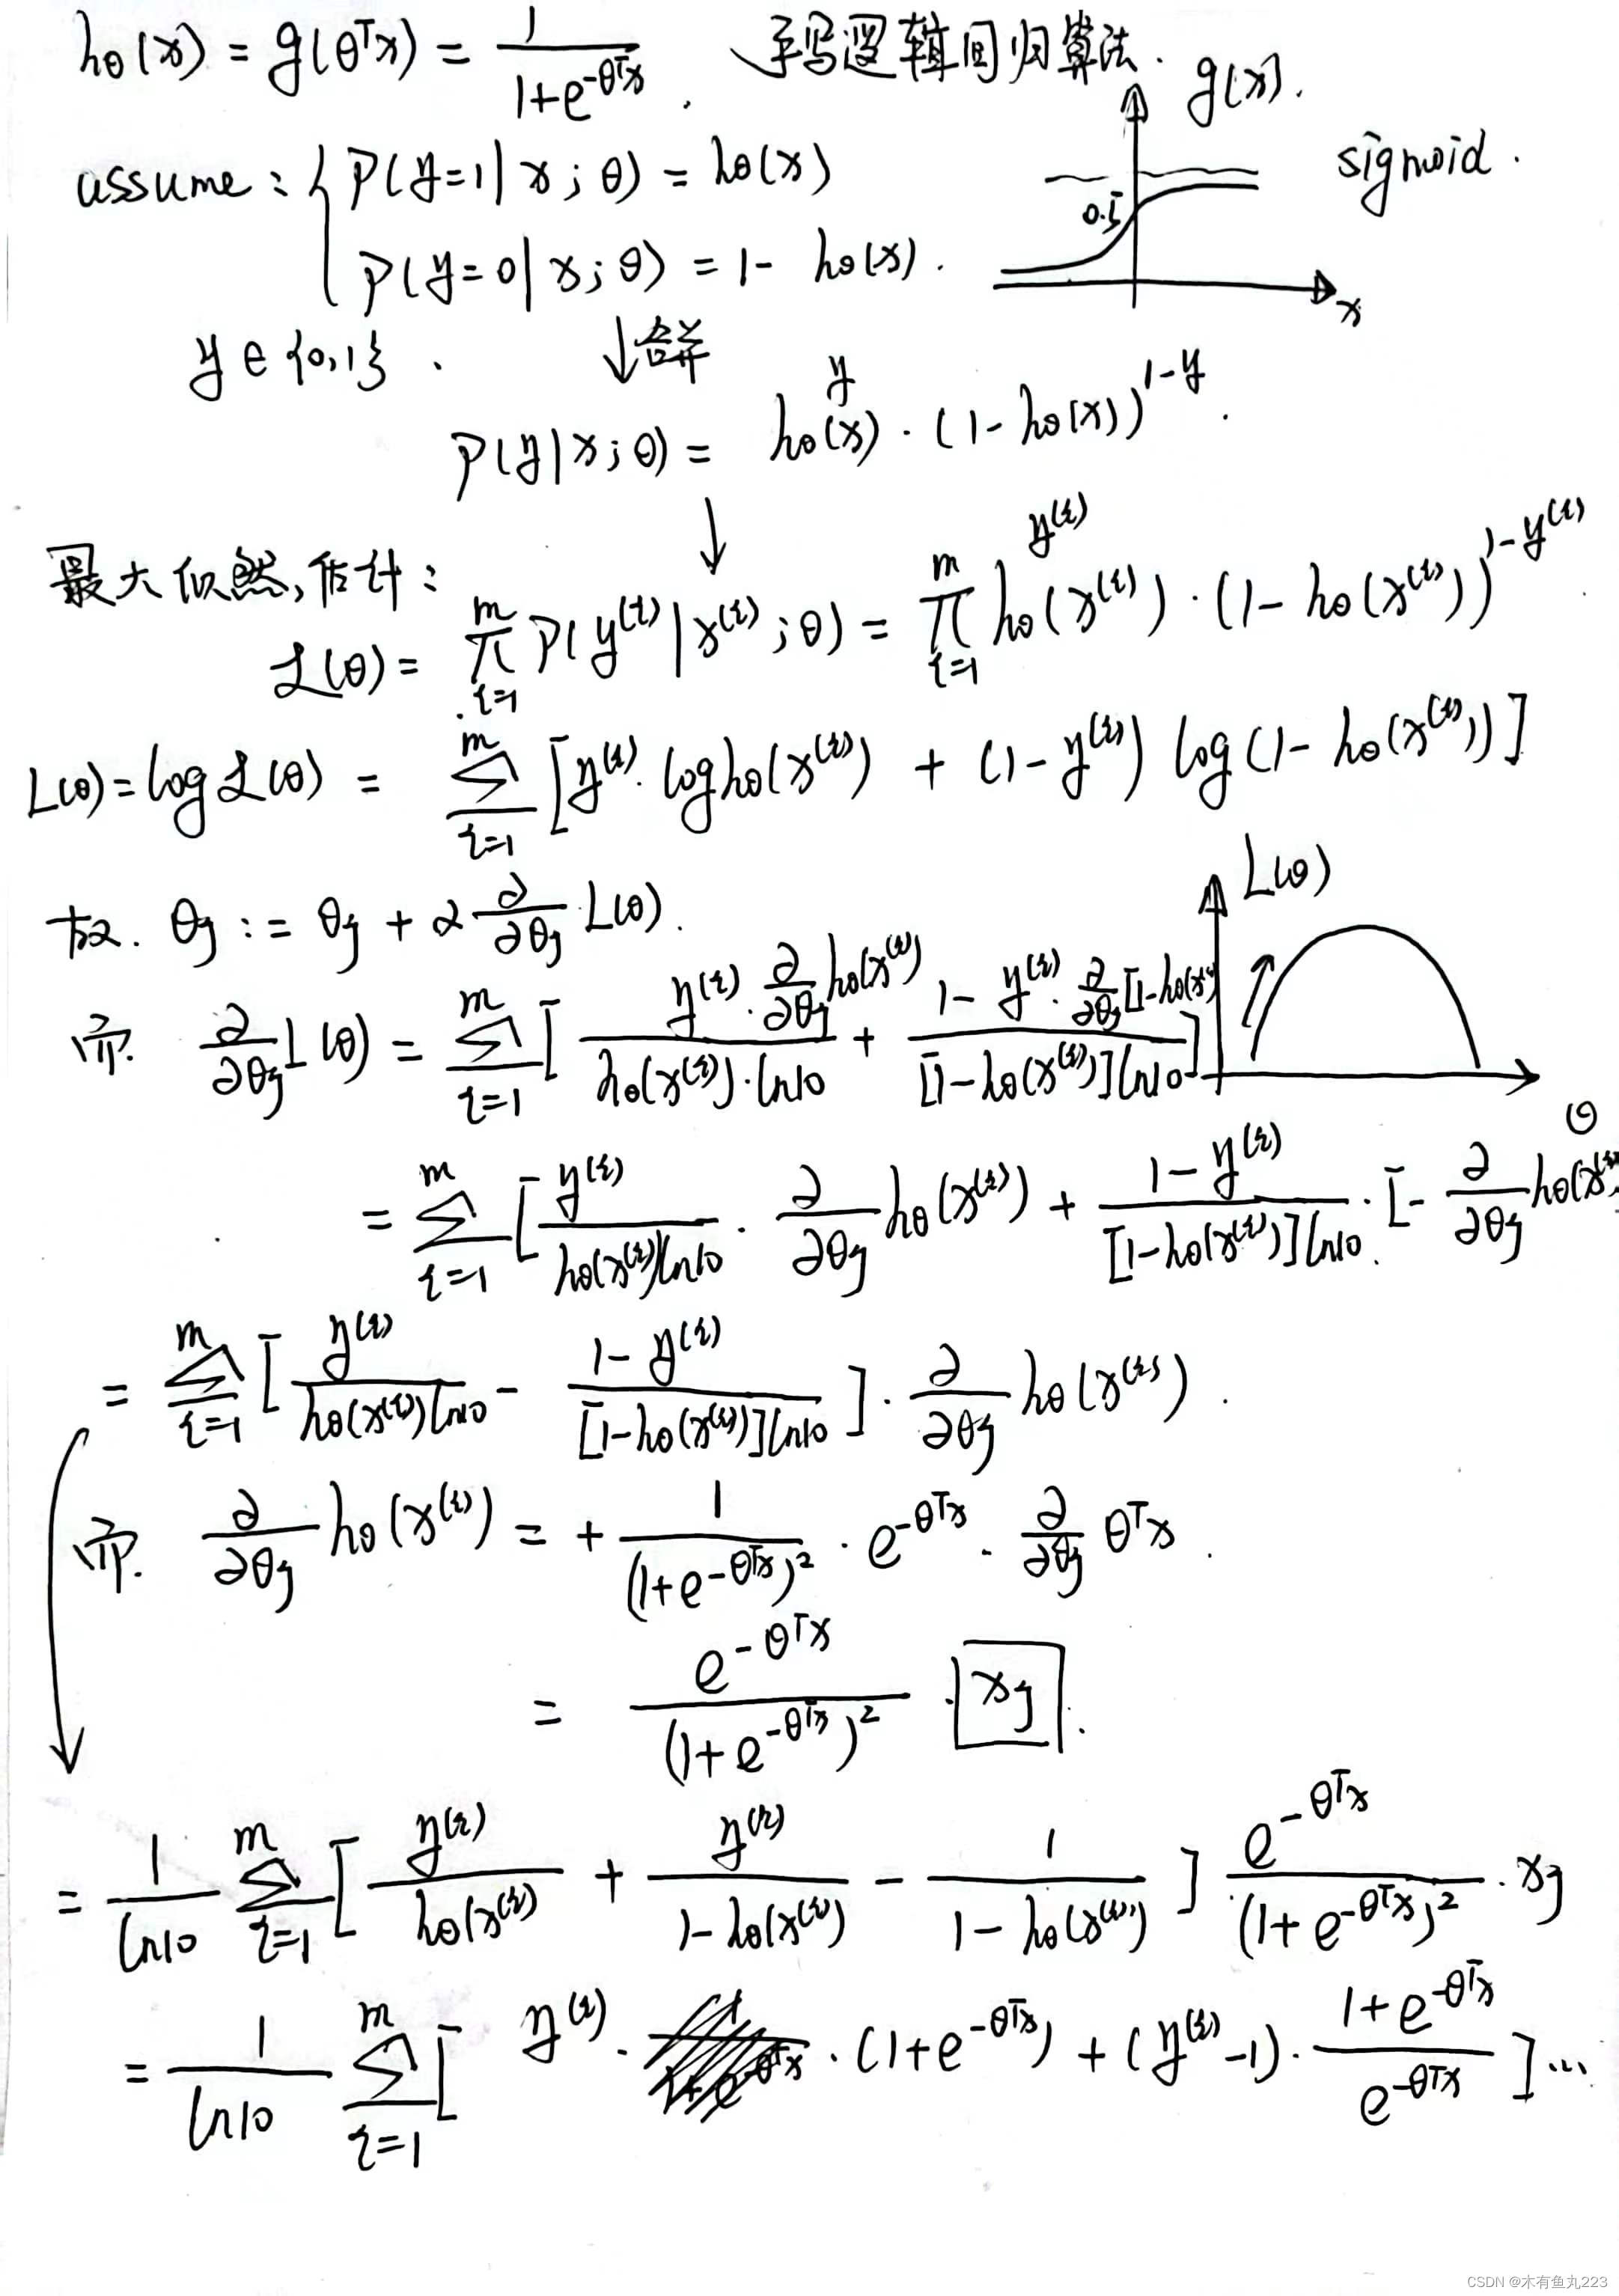 hθ(x) = g(θᵀx) = 1/(1+e^(-θᵀx)) . 手写逻辑回归算法.
g(x).
sigmoid.
assume: { P(y=1|x;θ) = hθ(x)
0.5
P(y=0|x;θ) = 1 - hθ(x).
x
y∈{0,1}. ↓合并
P(y|x;θ) = hθ(x)^y · (1-hθ(x))^(1-y).
↓
最大似然估计:
ℒ(θ) = ∏_{i=1}^{m} P(y^(i)|x^(i);θ) = ∏_{i=1}^{m} hθ(x^(i))^(y^(i)) · (1-hθ(x^(i)))^(1-y^(i)).
L(θ) = log ℒ(θ) = ∑_{i=1}^{m} [y^(i)·log hθ(x^(i)) + (1-y^(i)) log(1-hθ(x^(i)))]
L(θ)
故. θj := θj + α ∂/∂θj L(θ).
而. ∂/∂θj L(θ) = ∑_{i=1}^{m} [ y^(i)·∂/∂θj hθ(x^(i)) / hθ(x^(i))·ln10 + 1-y^(i)·∂/∂θj[1-hθ(x^(i)) / [1-hθ(x^(i))]ln10 ]
θ
= ∑_{i=1}^{m} [ y^(i)/hθ(x^(i))ln10 · ∂/∂θj hθ(x^(i)) + 1-y^(i)/[1-hθ(x^(i))]ln10 · [- ∂/∂θj hθ(x^(i))
= ∑_{i=1}^{m} [ y^(i)/hθ(x^(i))ln10 - 1-y^(i)/[1-hθ(x^(i))]ln10 ] · ∂/∂θj hθ(x^(i)).
而. ∂/∂θj hθ(x^(i)) = + 1/(1+e^(-θᵀx))² · e^(-θᵀx) · ∂/∂θj θᵀx.
= e^(-θᵀx)/(1+e^(-θᵀx))² · xj.
= 1/ln10 ∑_{i=1}^{m} [ y^(i)/hθ(x^(i)) + y^(i)/1-hθ(x^(i)) - 1/1-hθ(x^(i)) ] e^(-θᵀx)/(1+e^(-θᵀx))² · xj
= 1/ln10 ∑_{i=1}^{m} [ y^(i) · (1+e^(-θᵀx)) + (y^(i)-1) · 1+e^(-θᵀx)/e^(-θᵀx) ] ...
CSDN @木有鱼丸223